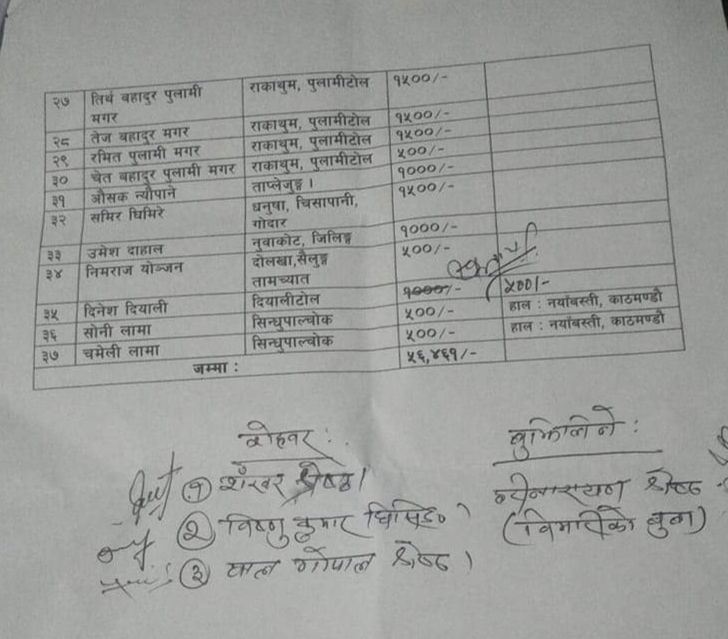 २७ तिर्थ बहादुर पुलामी मगर राकाथुम, पुलामीटोल १५००/-
२८ तेज बहादुर मगर राकाथुम, पुलामीटोल १५००/-
२९ रमित पुलामी मगर राकाथुम, पुलामीटोल १५००/-
३० चेत बहादुर पुलामी मगर राकाथुम, पुलामीटोल ५००/-
३१ औसक न्यौपाने ताप्लेजुङ्ग । १०००/-
३२ समिर घिमिरे धनुषा, चिसापानी, गोदार १५००/-
३३ उमेश दाहाल नुवाकोट, जिलिङ्ग १०००/-
३४ निमराज योञ्जन दोलखा,सैलुङ्ग तामच्यात ५००/-
३५ दिनेश दियाली दियालीटोल १०००/- ५००/-
३६ सोनी लामा सिन्धुपाल्चोक ५००/- हाल : नयाँबस्ती, काठमण्डौ
३७ चमेली लामा सिन्धुपाल्चोक ५००/- हाल : नयाँबस्ती, काठमण्डौ
जम्मा : ५६,४६१/-
रोहवर : बुझिलिने :
१ शंखर श्रेष्ठ । श्रेष्ठ
२ विष्णु कुमार (विमार्सिको बुबा)
३ गोपाल श्रेष्ठ ।